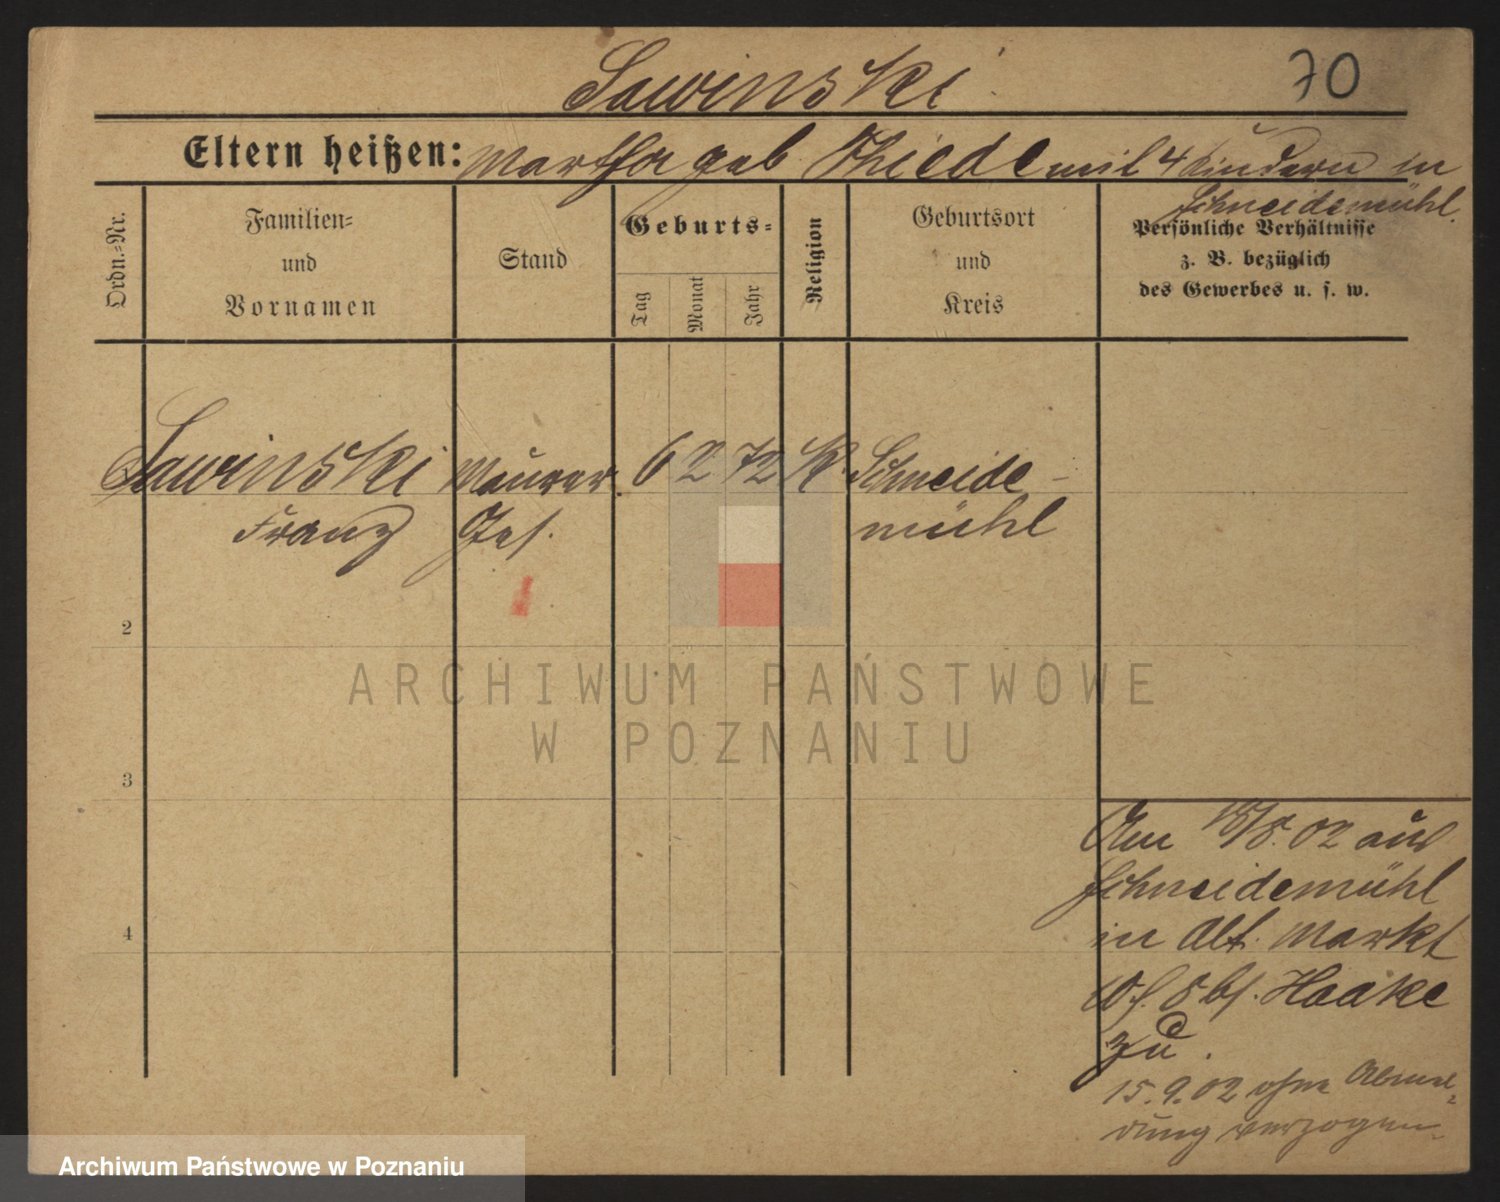 Sawinski
70
Eltern heißen: Martha geb. Thiede mit 4 Kindern in
Schneidemühl.
Ordn.-Nr.
Familien-
und
Vornamen
Stand
Geburts-
Tag
Monat
Jahr
Religion
Geburtsort
und
Kreis
Persönliche Verhältnisse
z. B. bezüglich
des Gewerbes u. s. w.
Sawinski Maurer 6 2 72 K. Schneide-
Franz Ges. mühl
2
ARCHIWUM PAŃSTWOWE
W POZNANIU
3
4
Am 18/8.02 aus
Schneidemühl
in Alt. Markt
bs. Haake
zu.
15.9.02 ohne Abmel-
dung verzogen
Archiwum Państwowe w Poznaniu